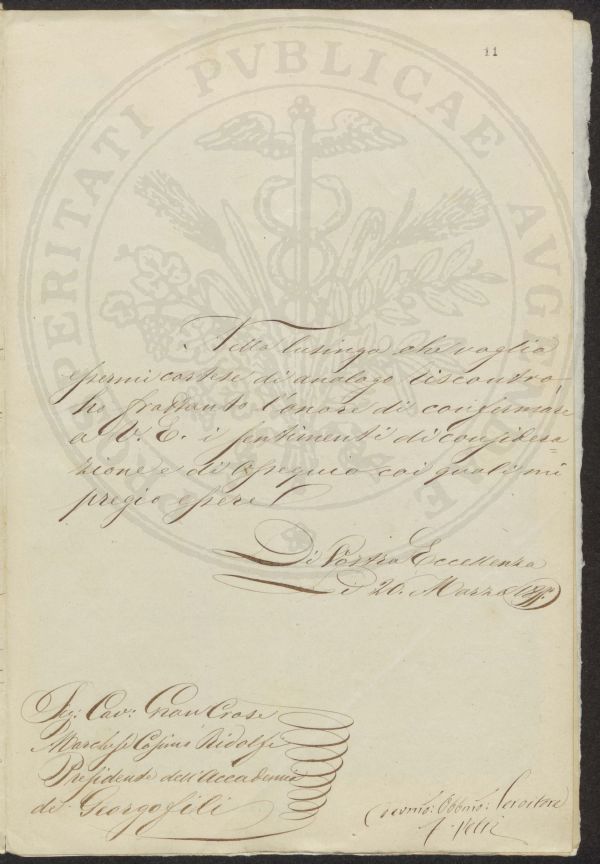 11
PROSPERITATI PVBLICAE AVGENDAE
Nella lusinga che voglia
essermi cortese di analogo riscontro,
ho frattanto l'onore di confermare
a V. E. i sentimenti di considera=
zione e di ossequio coi quali mi
pregio essere
Di Vostra Eccellenza
Li 20. Marzo
Sig: Cav: Gran Croce
Marchese Cosimo Ridolfi
Presidente dell'Accademia
dei Georgofili
Devmo: Obbmo: Servitore